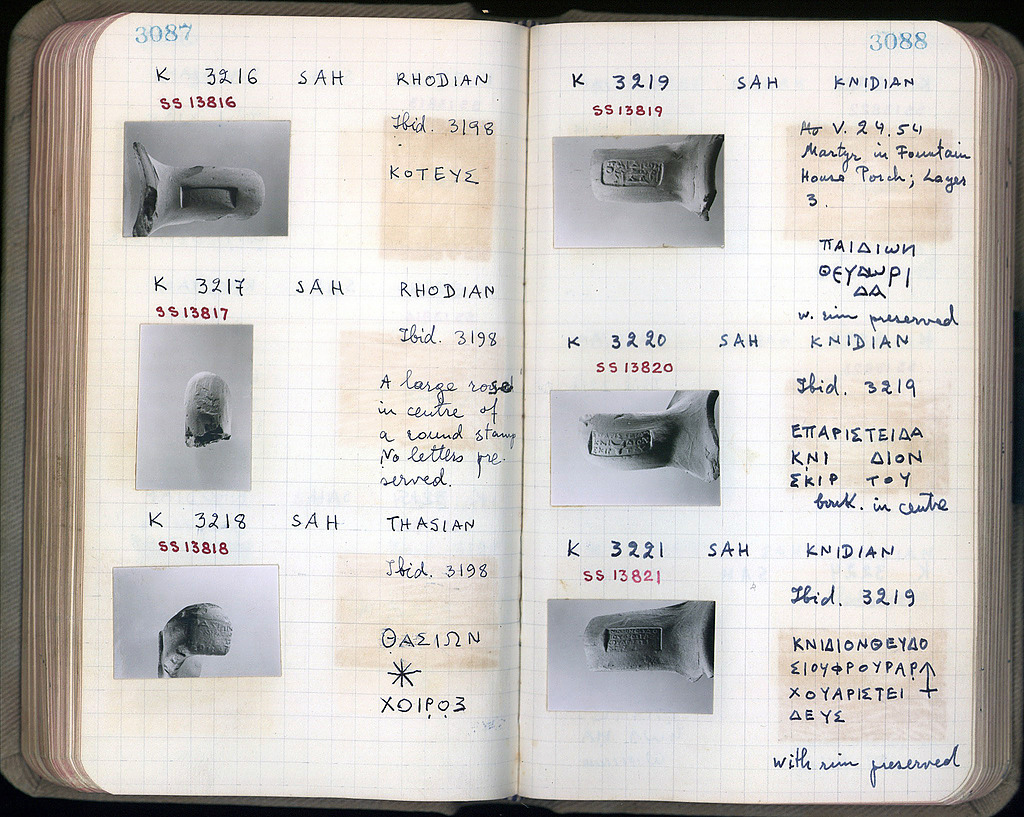 3087
K 3216 SAH RHODIAN
SS 13816
Ibid. 3198
ΚΟΤΕΥΣ
K 3217 SAH RHODIAN
SS 13817
Ibid. 3198
A large rose
in centre of
a round stamp
No letters pre-
served.
K 3218 SAH THASIAN
SS 13818
Ibid. 3198
ΘΑΣΙΩΝ
ΧΟΙΡΟΣ
3088
K 3219 SAH KNIDIAN
SS 13819
V. 24.54
Martyr in Fountain
House Porch; Layer
3.
ΠΑΙΔΙΩΝ
ΘΕΥΔΩΡΙ
ΔΑ
w. rim preserved
K 3220 SAH KNIDIAN
SS 13820
Ibid. 3219
ΕΠΑΡΙΣΤΕΙΔΑ
ΚΝΙ ΔΙΟΝ
ΣΚΙΡ ΤΟΥ
in centre
K 3221 SAH KNIDIAN
SS 13821
Ibid. 3219
ΚΝΙΔΙΟΝΘΕΥΔΟ
ΣΙΟΥΦΡΟΥΡΑΡ
ΧΟΥΑΡΙΣΤΕΙ
ΔΕΥΣ
with rim preserved